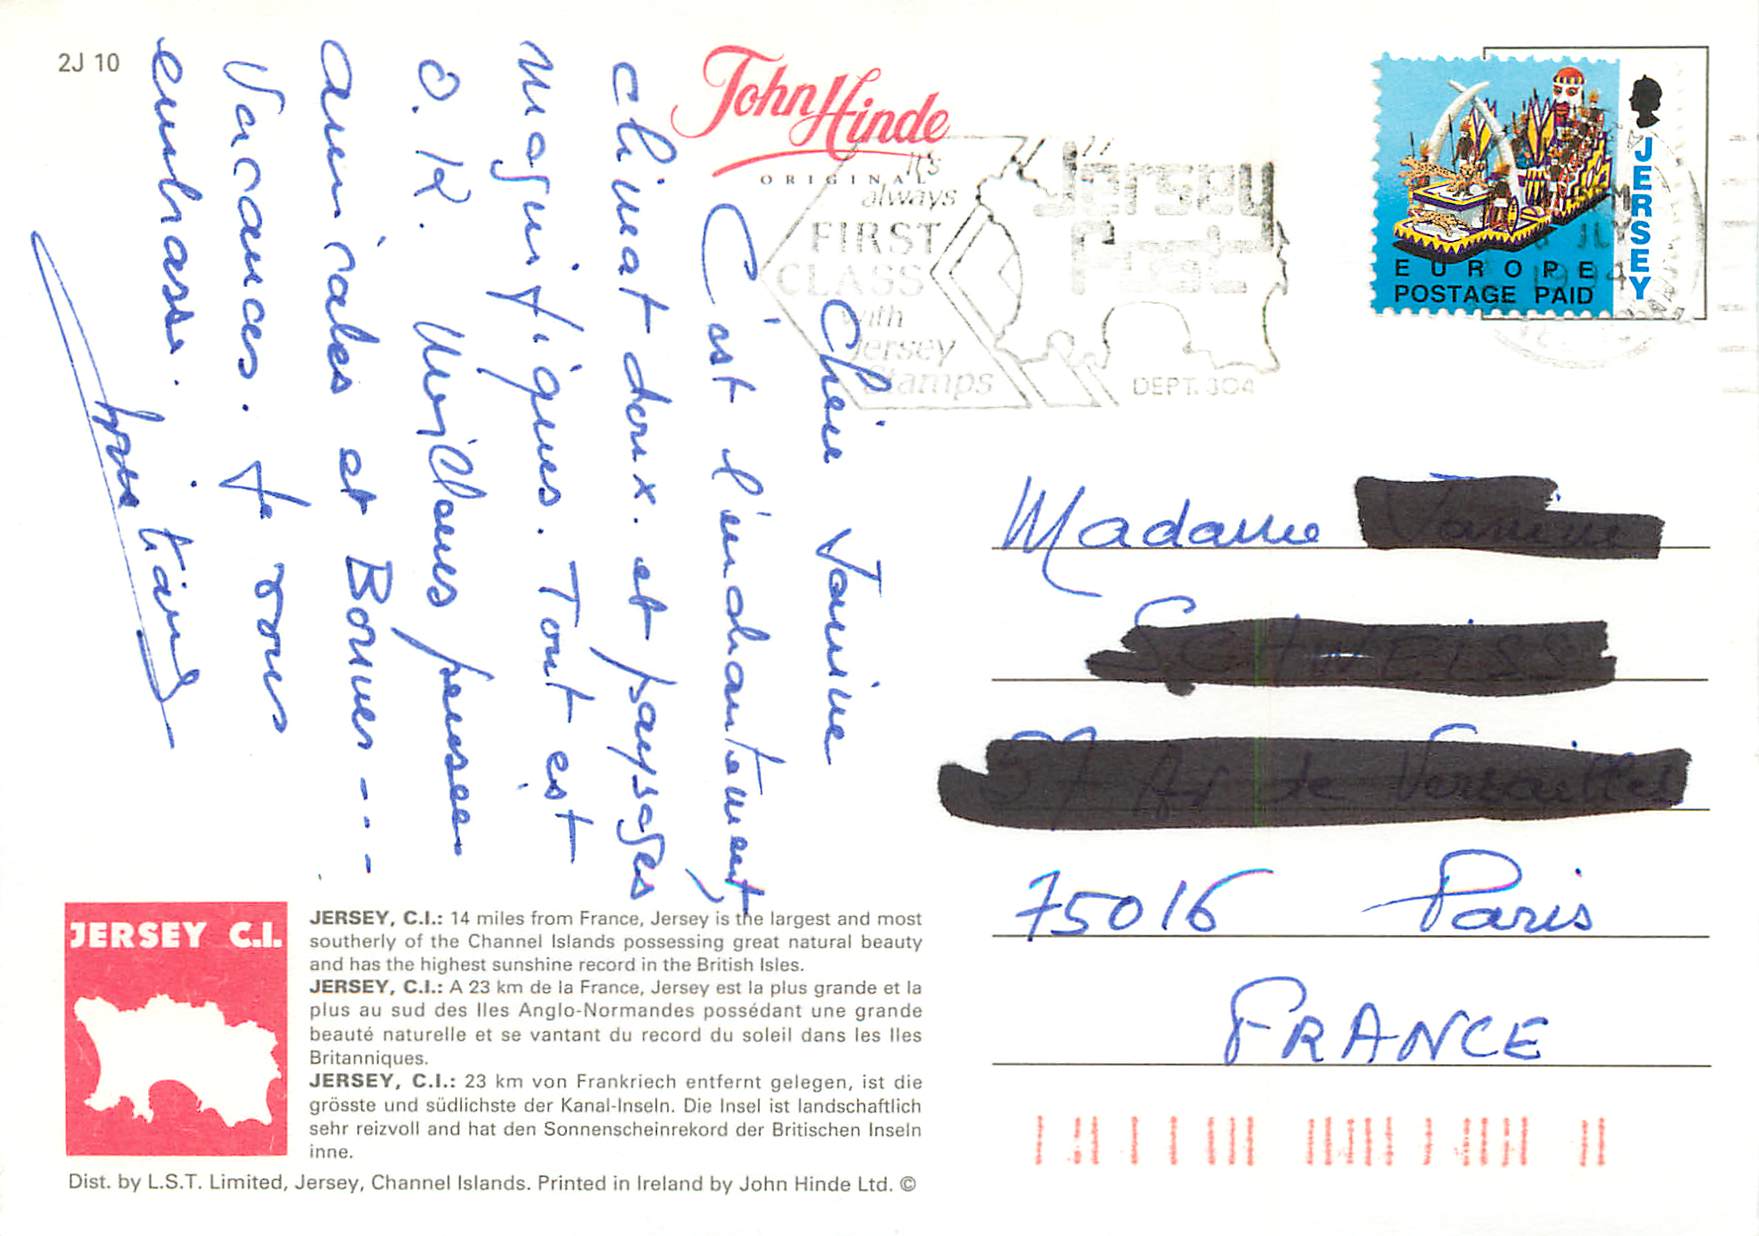 2J 10
John Hinde
ORIGINAL
It's
always
FIRST
CLASS
with
Jersey
Stamps
Jersey
Post
DEPT. 304
JERSEY
EUROPE
POSTAGE PAID
JLY
1994
Chère Janine
C'est l'enchantement,
climat doux. et paysages
magnifiques. Tout est
O.K. Meilleures pensées
amicales et Bonnes ---
Vacances. Je vous
embrasse.
Madame
75016 Paris
FRANCE
JERSEY C.I.
JERSEY, C.I.: 14 miles from France, Jersey is the largest and most
southerly of the Channel Islands possessing great natural beauty
and has the highest sunshine record in the British Isles.
JERSEY, C.I.: A 23 km de la France, Jersey est la plus grande et la
plus au sud des Iles Anglo-Normandes possédant une grande
beauté naturelle et se vantant du record du soleil dans les Iles
Britanniques.
JERSEY, C.I.: 23 km von Frankriech entfernt gelegen, ist die
grösste und südlichste der Kanal-Inseln. Die Insel ist landschaftlich
sehr reizvoll and hat den Sonnenscheinrekord der Britischen Inseln
inne.
Dist. by L.S.T. Limited, Jersey, Channel Islands. Printed in Ireland by John Hinde Ltd. ©